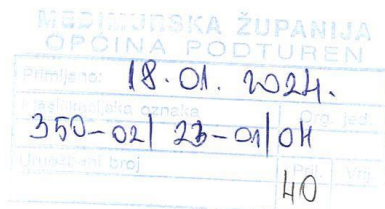 MEĐIMURSKA ŽUPANIJA
OPĆINA PODTUREN
Primljeno: 18.01. 2024.
Klasifikacijska oznaka Org. jed.
350-02/ 23-01/04
Urudžbeni broj Pril. Vrij.
40